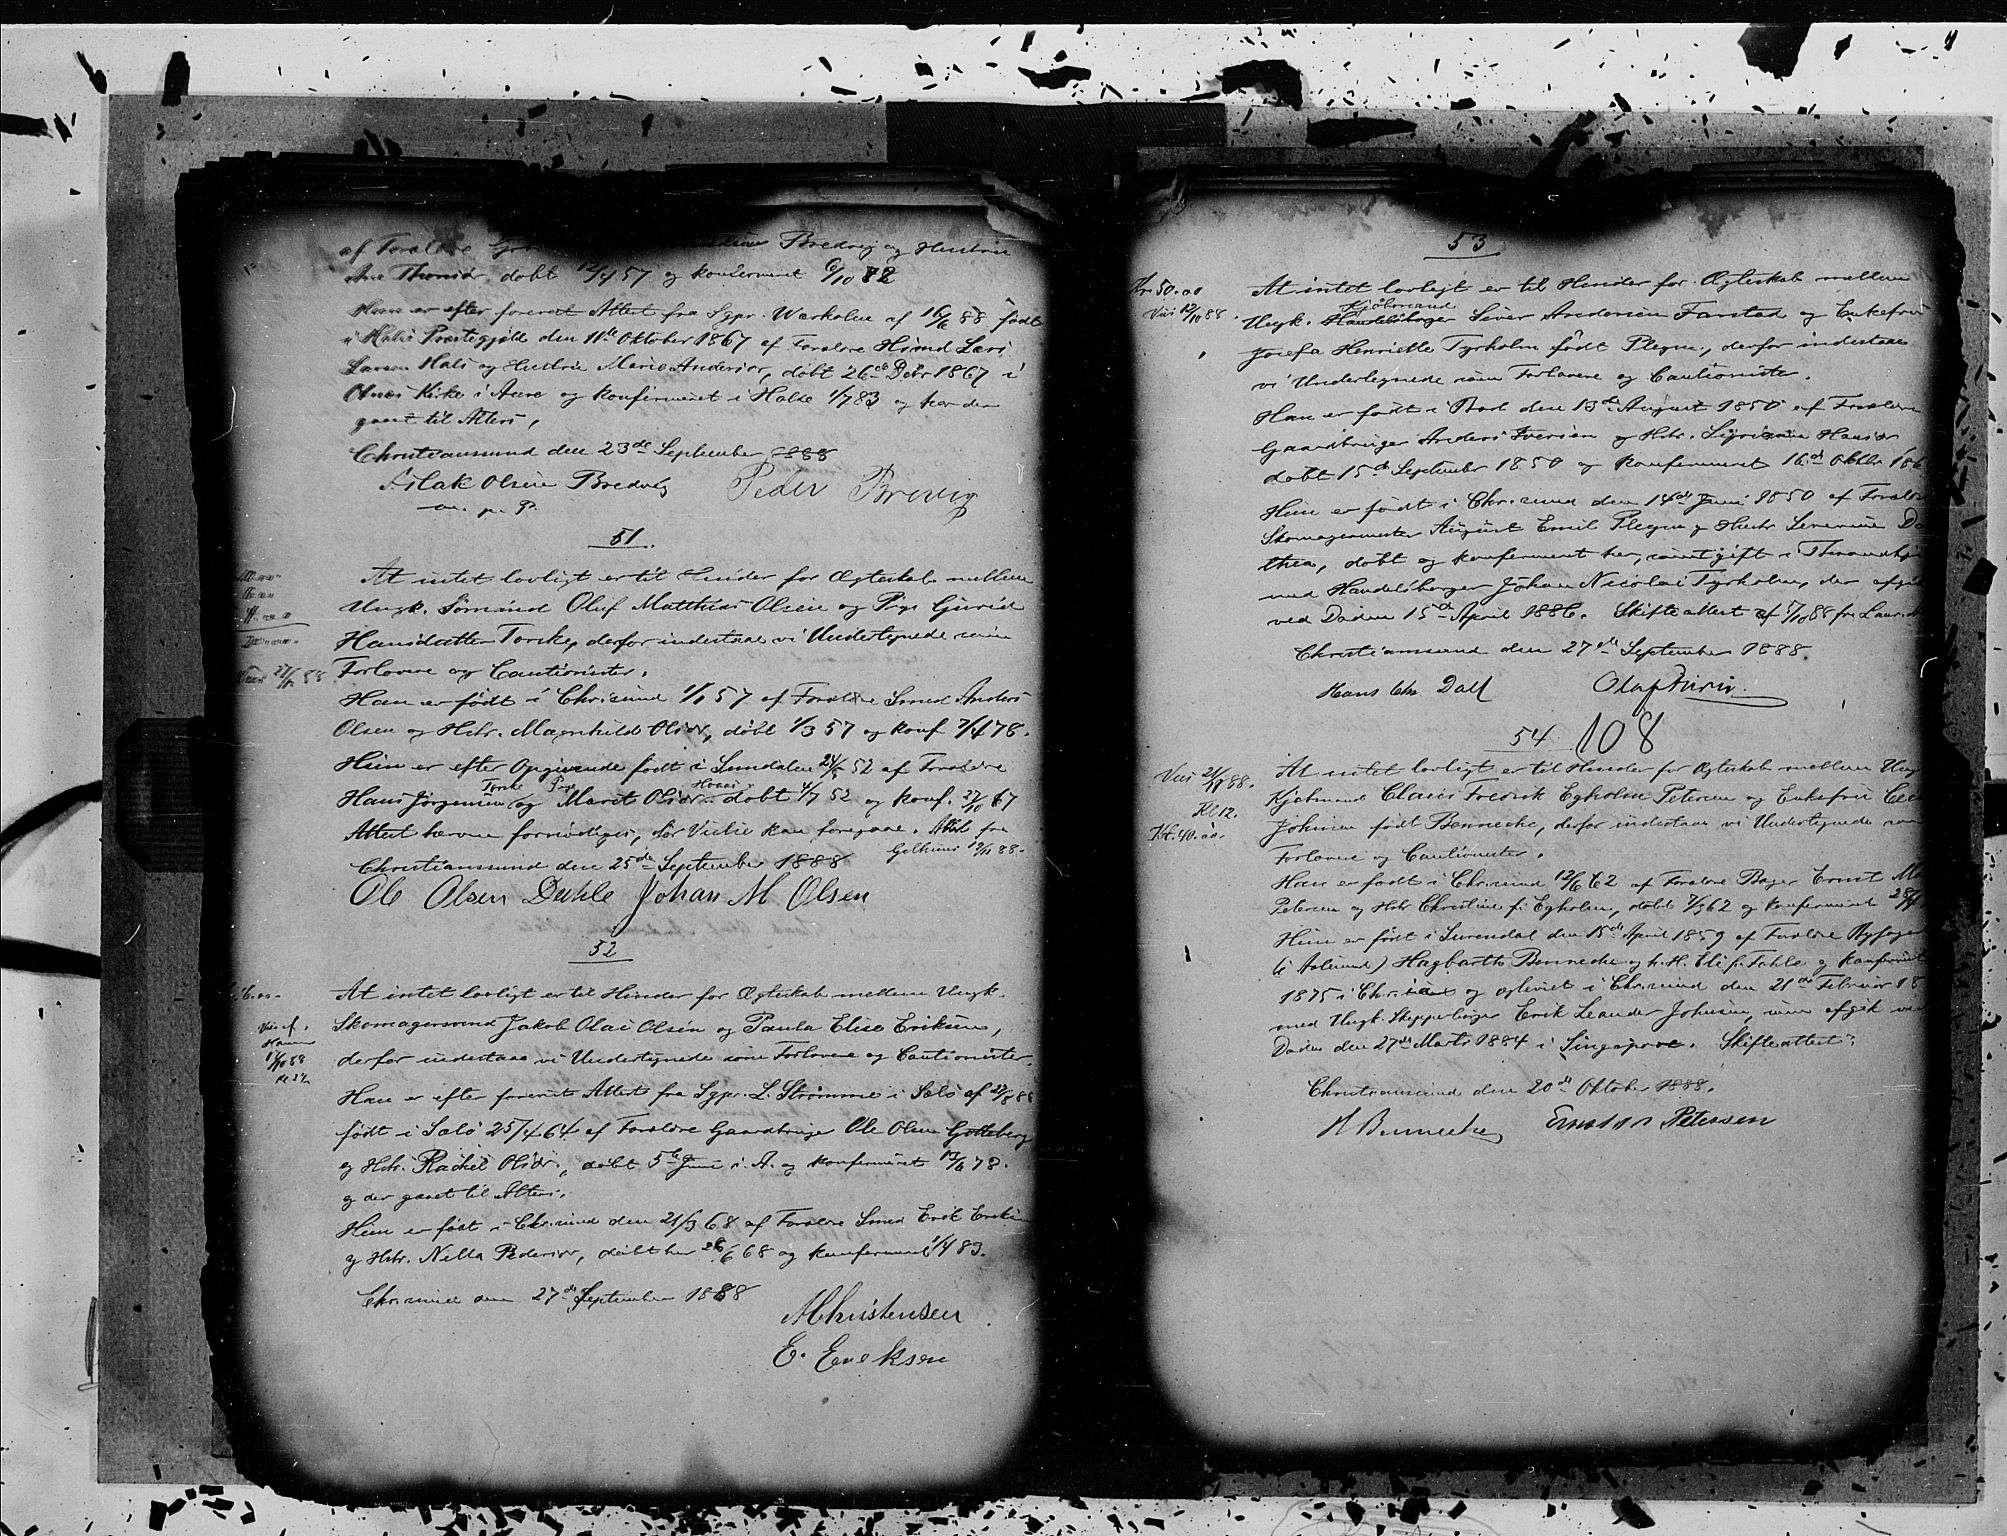 af Forældre Bredvig og Hustru
Ane Thomisdr. døbt 12/4 57 og konfirmeret 6/10 72
Hun er efter forevist Attest fra Sgpr. Warholm af 16/6 88 født
i Halse Præstegjeld den 11te Oktober 1867 af Forældre Huusmd Lars
Larsen Hals og Hustru Marie Andersdr, døbt 26de Debr 1867 i
Kirke i Aure og konfirmeret i Halse 1/7 83 og har der
gaaet til Alters,
Christiansund den 23de September 1888
Islak Olsen Bredvig Peder Brevig
m. p. P.
51.
At intet lovligt er til Hinder for Ægteskab mellem
Ungk. Sømand Oluf Matthias Olsen og Pige Gjurid
Hansdatter Torske, derfor indestaae vi Undertegnede som
Forlovere og Cautionister.
Han er født i Chr.sund 1/1 57 af Forældre Smed Anders
Olsen og Hstr. Magnhild Olsdr, døbt 1/3 57 og konf 7/4 78.
Hun er efter Opgivende født i Sundalen 24/5 52 af Forældre
Torske Hoaas
Hans Jørgensen og Pige Marit Olsdr. døbt 4/7 52 og konf. 27/10 67
Attest herom fornødiges, før Vielse kan foregaae. Attest fra
Christiansund den 25de September 1888 12/11 88.
Ole Olsen Dahle Johan M Olsen
52
At intet lovligt er til Hinder for Ægteskab mellem Ungk.
Skomagersvend Jakob Olai Olsen og Paula Elise Eriksen,
derfor indestaae vi Undertegnede som Forlovere og Cautionister.
Han er efter forevist Attest fra Sgpr. L. Strømme i Sælø af 27/8 88
født i Sælø 25/4 64 af Forældre Gaardbruger Ole Olsen Gotteberg
og Hstr. Rachel Olsdr., døbt 5te Juni s. A. og konfirmeret 13/6 78.
og der gaaet til Alters.
Hun er født i Chr.sund den 21/3 68 af Forældre Smed Erik Eriksen
og Hstr. Nella Pedersdr, døbt her 28/6 68 og konfirmeret 1/4 83.
Chr.sund den 27de September 1888
AChristensen
E. Ereksen
53
Kr. 50.00
Viet 12/10 88.
At intet lovligt er til Hinder for Ægteskab mellem
Kjøbmand
Ungk. Handelsborger Siver Andersen Farstad og Enkefru
Josefa Henriette Tyrholm født Plegne, derfor indestaae
vi Undertegnede som Forlovere og Cautionister.
Han er født i Bod den 13de August 1850 af Forældre
Gaardbruger Anders Iversen og Hstr. Hansdr
døbt 15de September 1850 og konfirmeret 16de Oktbr
Hun er født i Chr.sund den 14de Juni 1850 af Forældre
Skomagermester August Emil Plegne og Hustr Severine Do
thea, døbt og konfirmeret her, samt gift i
med Handelsborger Johan Nicolai Tyrholm, der afgik
ved Døden 15de April 1886. Skifteattest af 5/10 88 fra
Christiansund den 27de September 1888.
Hans Chr Dall
54 108
Viet 21/11 88.
Kl 12.
Kr. 40.00.
At intet lovligt er til Hinder for Ægteskab mellem Ungk
Kjøbmand Claus Fredrik Egholm Petersen og Enkefru
Johnsen født Bennecke, derfor indestaae vi Undertegnede som
Forlovere og Cautionister.
Han er født i Chr.sund 12/6 62 af Forældre Bager Ernst
Petersen og Hstr Christine f. Egholm, døbt 7/9 62 og konfirmeret
Hun er født i Surendal den 15de April 1859 af Forældre
(i Aalesund) Hagbarth Bennecke og h. H. Eli f. Tahle og konfirmeret
1875 i Chr.sund og egteviet i Chr.sund den 21de Februar 18
med Ungk. Skipperborger Erik Leander Johnsen, som afgik ved
Døden den 27de Marts 1884 i Singapore. Skifteattest?
Christiansund den 20de Oktober 1888.
H Bennecke Ernst M Petersen